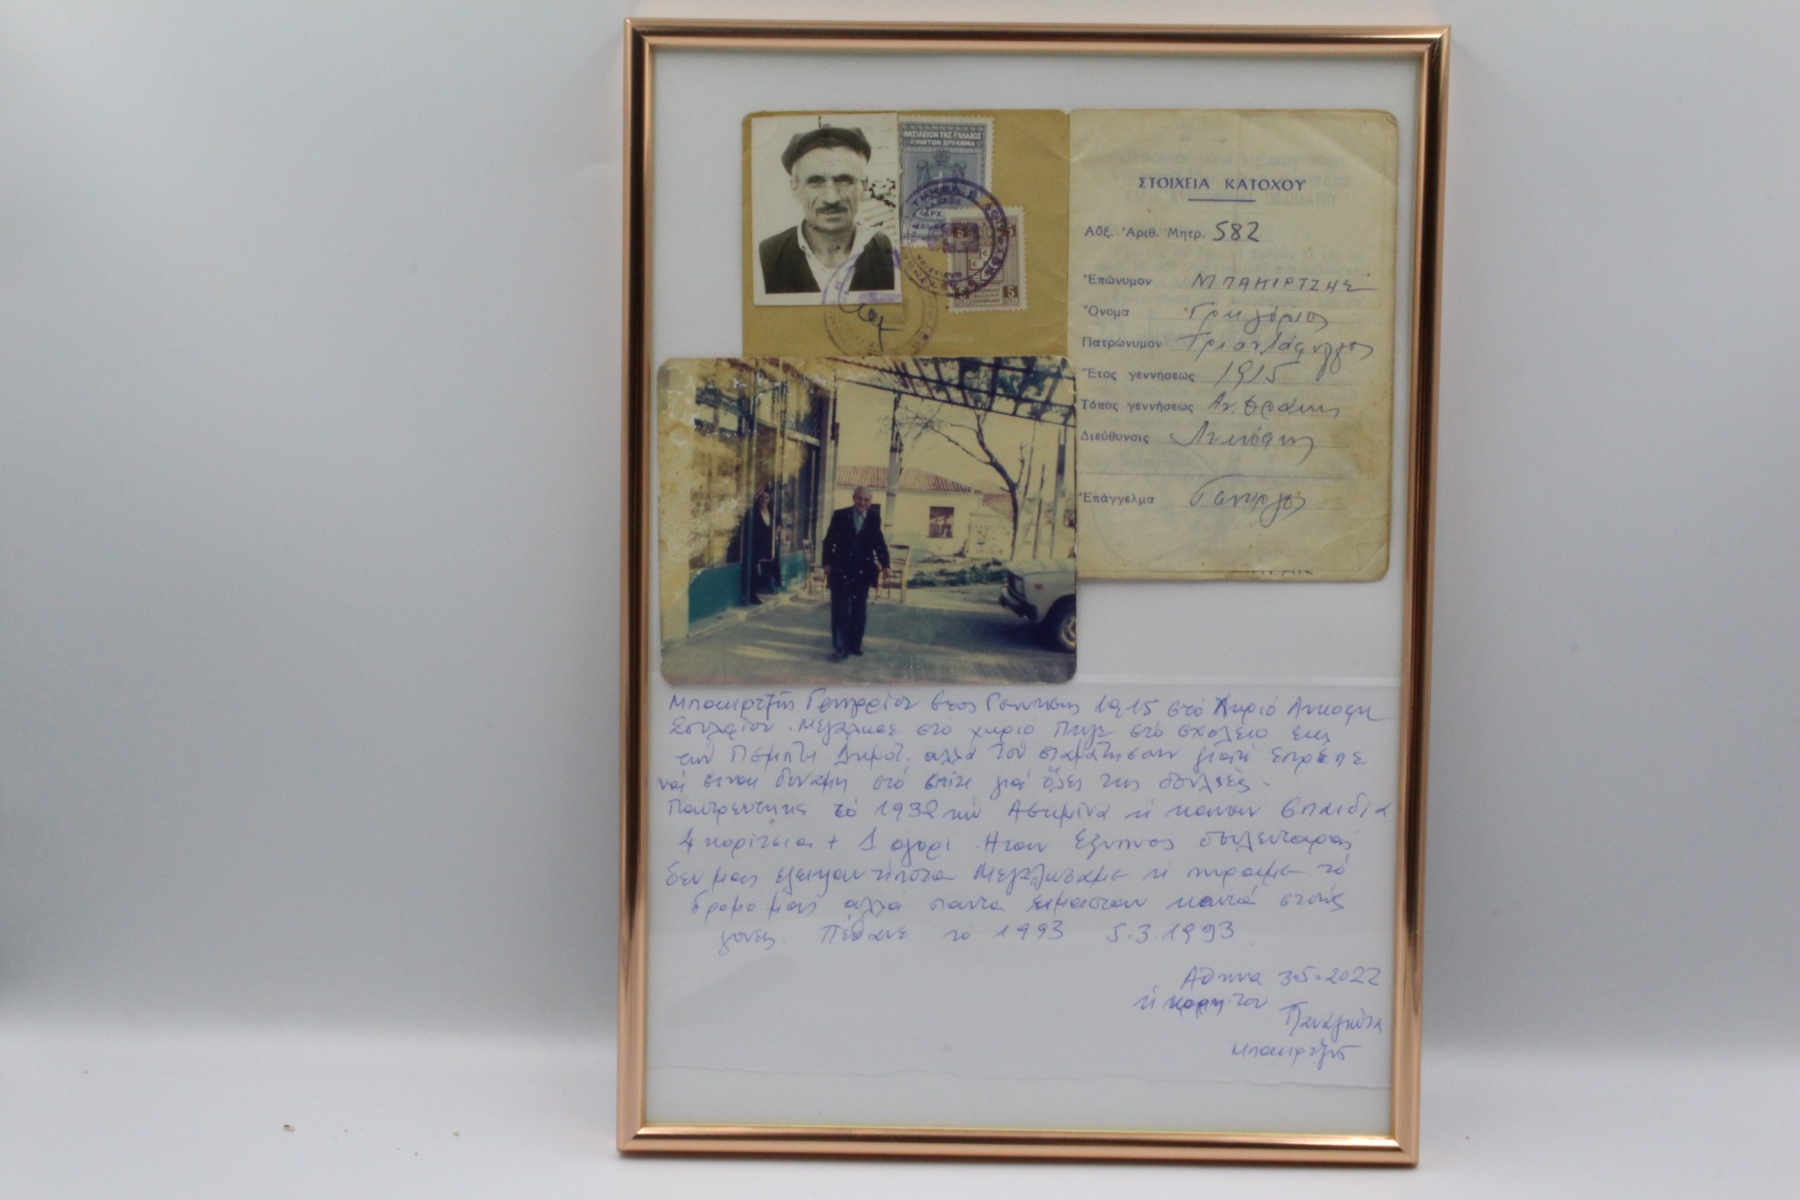 ΒΑΣΙΛΕΙΟΝ ΤΗΣ ΕΛΛΑΔΟΣ
ΚΙΝΗΤΟΝ ΕΠΙΣΗΜΑ
5
5
ΣΤΟΙΧΕΙΑ ΚΑΤΟΧΟΥ
Αὔξ. Ἀριθ. Μητρ. 582
Ἐπώνυμον ΜΠΑΚΙΡΤΖΗΣ
Ὄνομα Γρηγόριος
Πατρώνυμον Τριαντάφυλλος
Ἔτος γεννήσεως 1915
Τόπος γεννήσεως Αν. Θράκης
Διεύθυνσις Λυκόφη
Ἐπάγγελμα Γεωργός
Μπακιρτζής Γρηγορίου έτος Γεννησης 1915 στό Χωριό Λυκοφη
Σουφλίου. Μεγάλωσε στό χωριό Πηγε στό σχολείο εως
την Πέμπτη Δημοτ. αλλά τον σταμάτησαν γιατί έπρεπε
νά είναι δυναμη στό σπίτι γιά όλες της δουλειές.
Παντρεύτηκε τό 1932 τήν Ασημίνα ή καναν 5παιδια
4 κορίτσια + 1 αγορι. Ηταν Εξυπνος δουλευταράς
δεν μας ελειψαν τίποτα Μεγαλώσαμε ή πηραμε τό
δρομο μας αλλά παντα ειμασταν κοντά στούς
γονεις. Πέθανε το 1993 5.3.1993
Αθηνα 3-5-2022
ή κορη του
Παναγιώτα
Μπακιρτζή